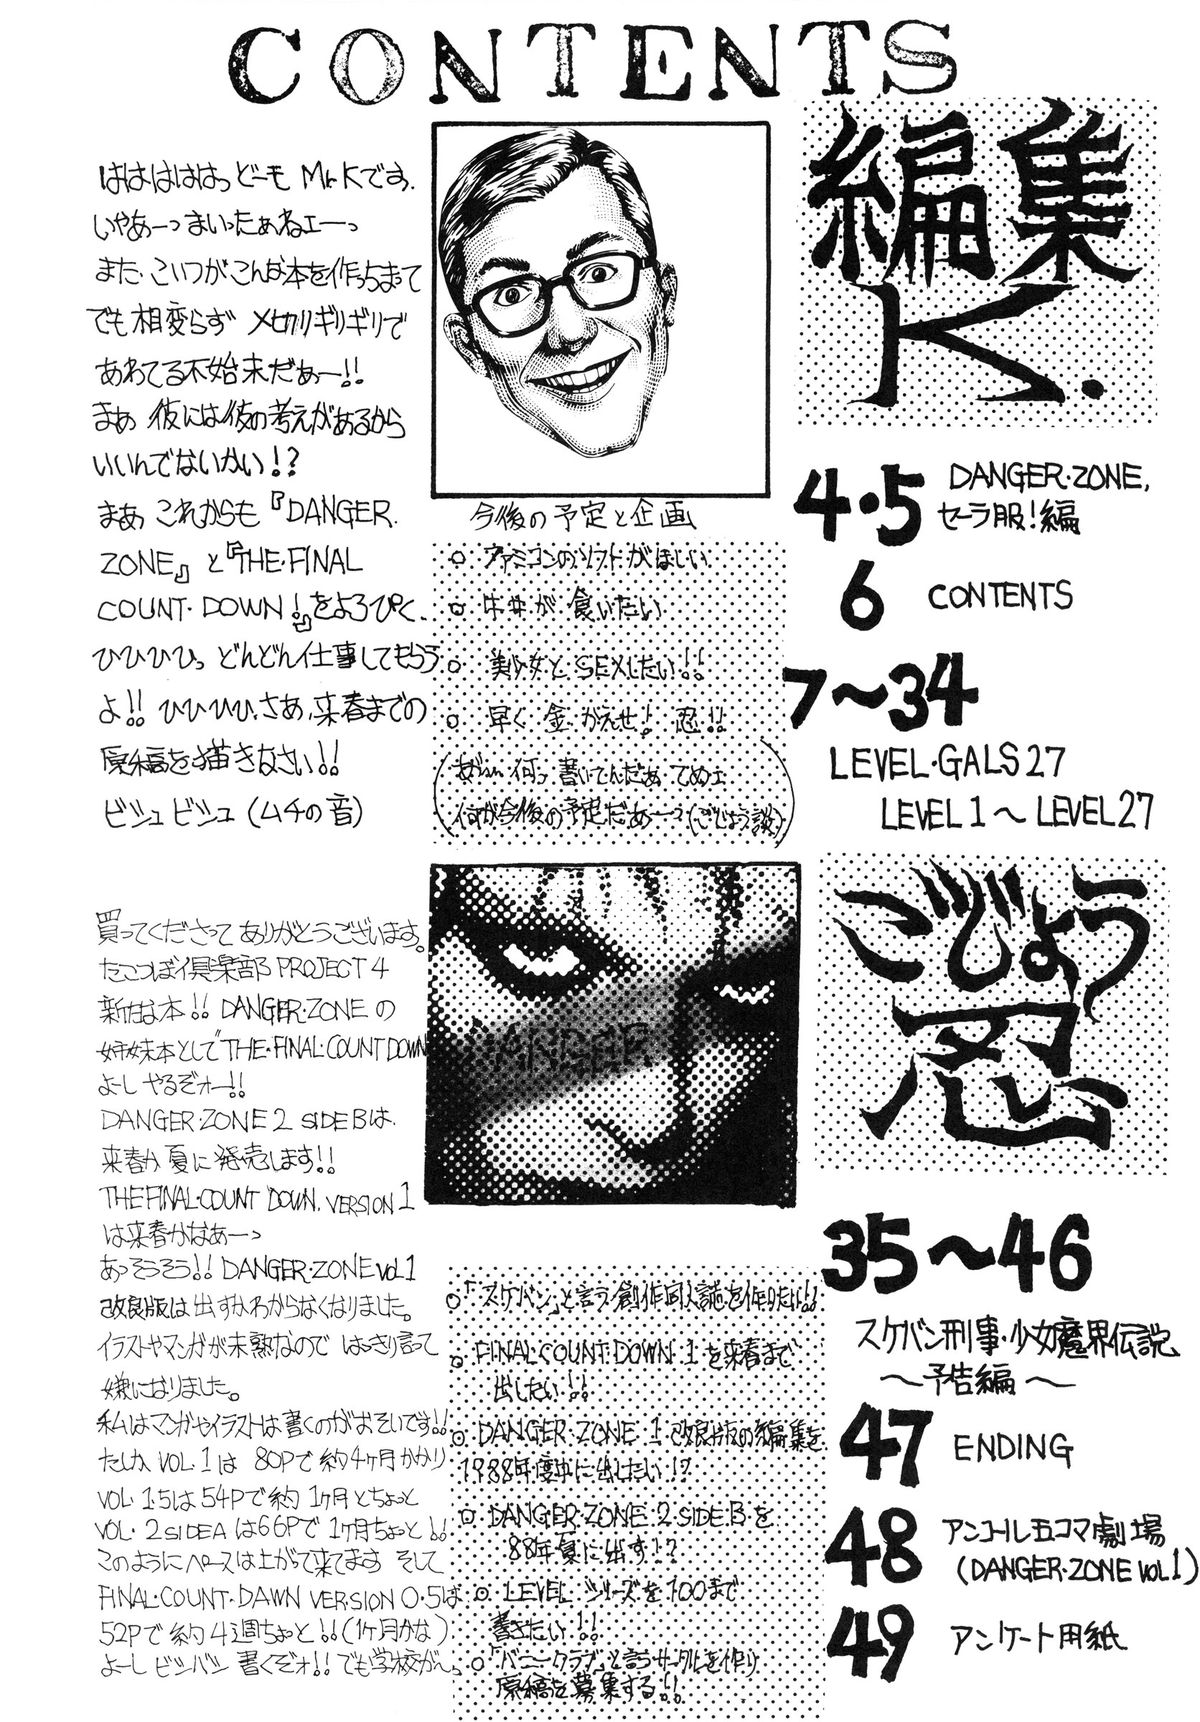 CONTENTS
編集
K.
ははははっどーも Mr.Kです。
いやあーっまいったぁねェーっ
また、こいつがこんな本を作っちまって
でも相変らず 〆切りギリギリで
あわてる不始末だぁー!!
まぁ 彼には彼の考えがあるから
いいんでないかい!?
まぁ これからも『DANGER.
ZONE』と『THE・FINAL
COUNT・DOWN!』をよろぴく、
ひひひひっ どんどん仕事してもらう
よ!! ひひひひ、さあ、来春までの
原稿を描きなさい!!
ビシュビシュ(ムチの音)
今後の予定と企画
○ ファミコンのソフトがほしい
○ 牛丼が食いたい
○ 美少女とSEXしたい!!
○ 早く金かえせ! 忍!!
何っ 書いてんだぁ てめェ
何が今後の予定だぁーっ(ごじょう談)
4・5 DANGER・ZONE,
セーラ服!編
6 CONTENTS
7〜34
LEVEL・GALS 27
LEVEL 1 〜 LEVEL 27
ごじょう
忍
買ってくださってありがとうございます。
たこつぼ倶楽部 PROJECT 4
新たな本!! DANGER・ZONEの
姉妹本として"THE・FINAL・COUNT DOWN
よーし やるぞォー!!
DANGER・ZONE 2 SIDE Bは、
来春か夏に発売します!!
THE FINAL・COUNT DOWN. VERSION 1
は来春かなあーっ
あっそうそう!! DANGER・ZONE VOL.1
改良版は出すかわからなくなりました。
イラストやマンガが未熟なので はっきり言って
嫌になりました。
私はマンガやイラストは書くのがおそいです!!
たしか VOL.1は 80Pで約4ヶ月かかり
VOL.1.5は54Pで約1ヶ月とちょっと
VOL.2 SIDEAは66Pで1ヶ月ちょっと!!
このようにペースは上がって来てます そして
FINAL・COUNT・DAWN VERSION 0.5は
52Pで約4週ちょっと!!(1ヶ月かな)
よーし ビシバシ 書くぞォ!! でも学校が…
DANGER
○「スケバン」と言う創作同人誌を作りたい!!
○ FINAL・COUNT・DOWN 1を来春まで
出したい!!
○ DANGER・ZONE 1 改良版の編集を
1988年度中に出したい!?
○ DANGER・ZONE 2 SIDE Bを
88年夏に出す!?
○ LEVEL シリーズを100まで
書きたい!!
○「バニークラブ」と言うサークルを作り
原稿を募集する!!
35〜46
スケバン刑事・少女魔界伝説
〜予告編〜
47 ENDING
48 アンコール五コマ劇場
(DANGER・ZONE VOL.1)
49 アンケート用紙